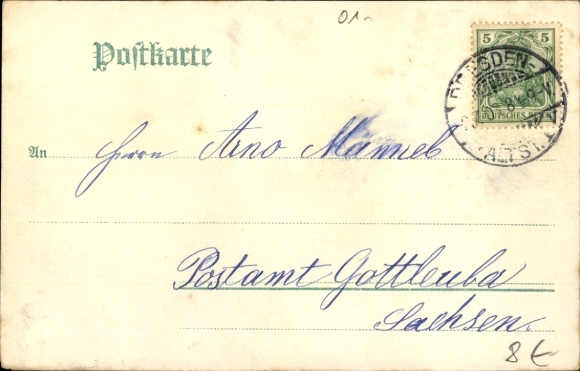 01.-
Postkarte
5 5
DEUTSCHES REICH
DRESDEN-
ALTST.
An Herrn Arno Männel
Postamt Gottleuba
Sachsen.
8 €